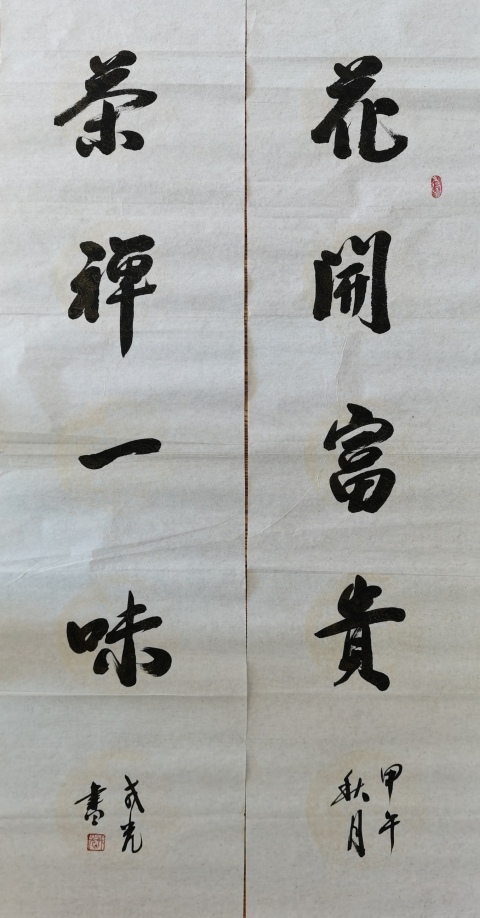 花開富貴
甲午
秋月
茶禪一味
成光
書